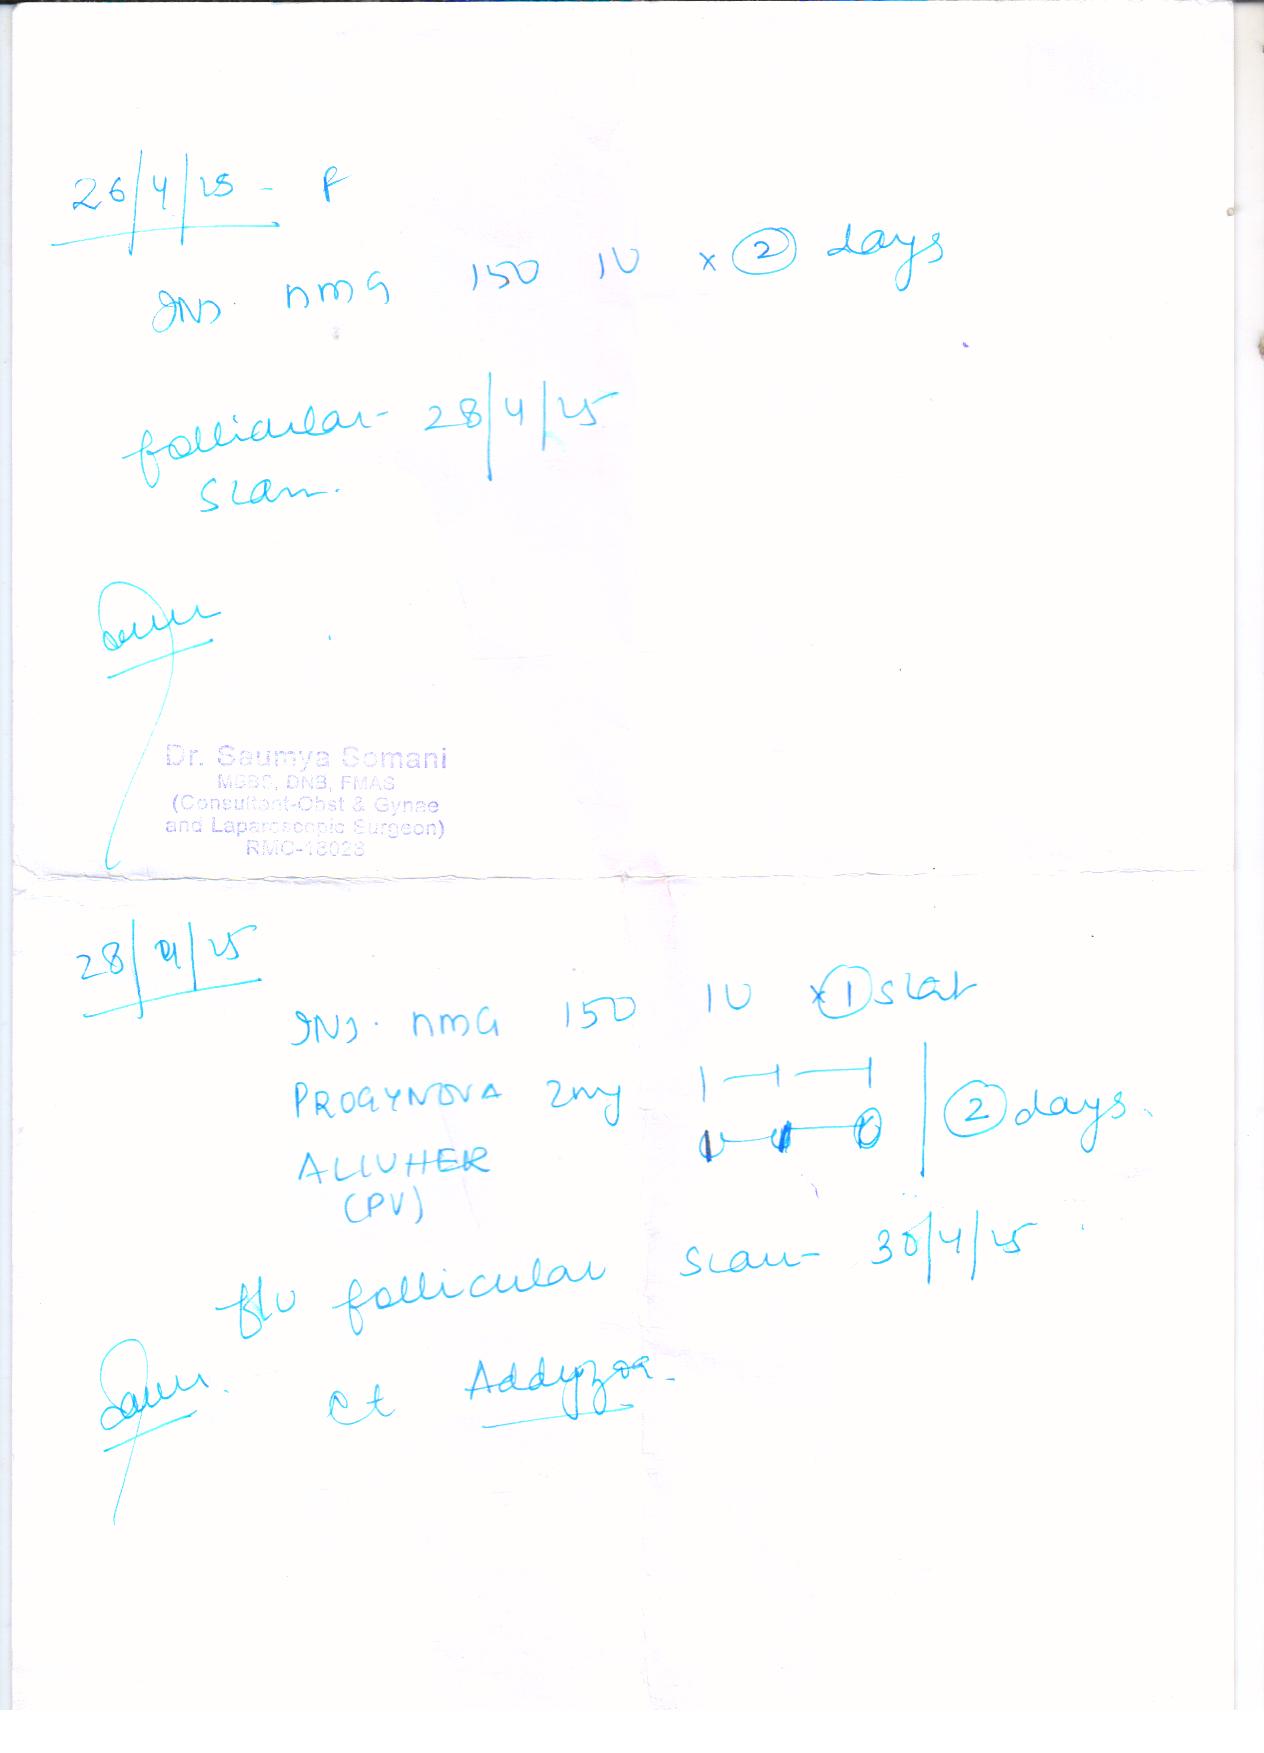 26/4/25 - P
INJ. HMG 150 IU x 2 days
follicular - 28/4/25
scan.
Dr. Saumya Somani
MBBS, DNB, FMAS
(Consultant-Obst & Gynae
and Laparoscopic Surgeon)
RMC-18028
28/4/25
INJ. HMG 150 IU x 1 stat
PROGYNOVA 2mg 1—1—1
2 days.
(PV)
f/u follicular scan - 30/4/25
ct Addyzoa.